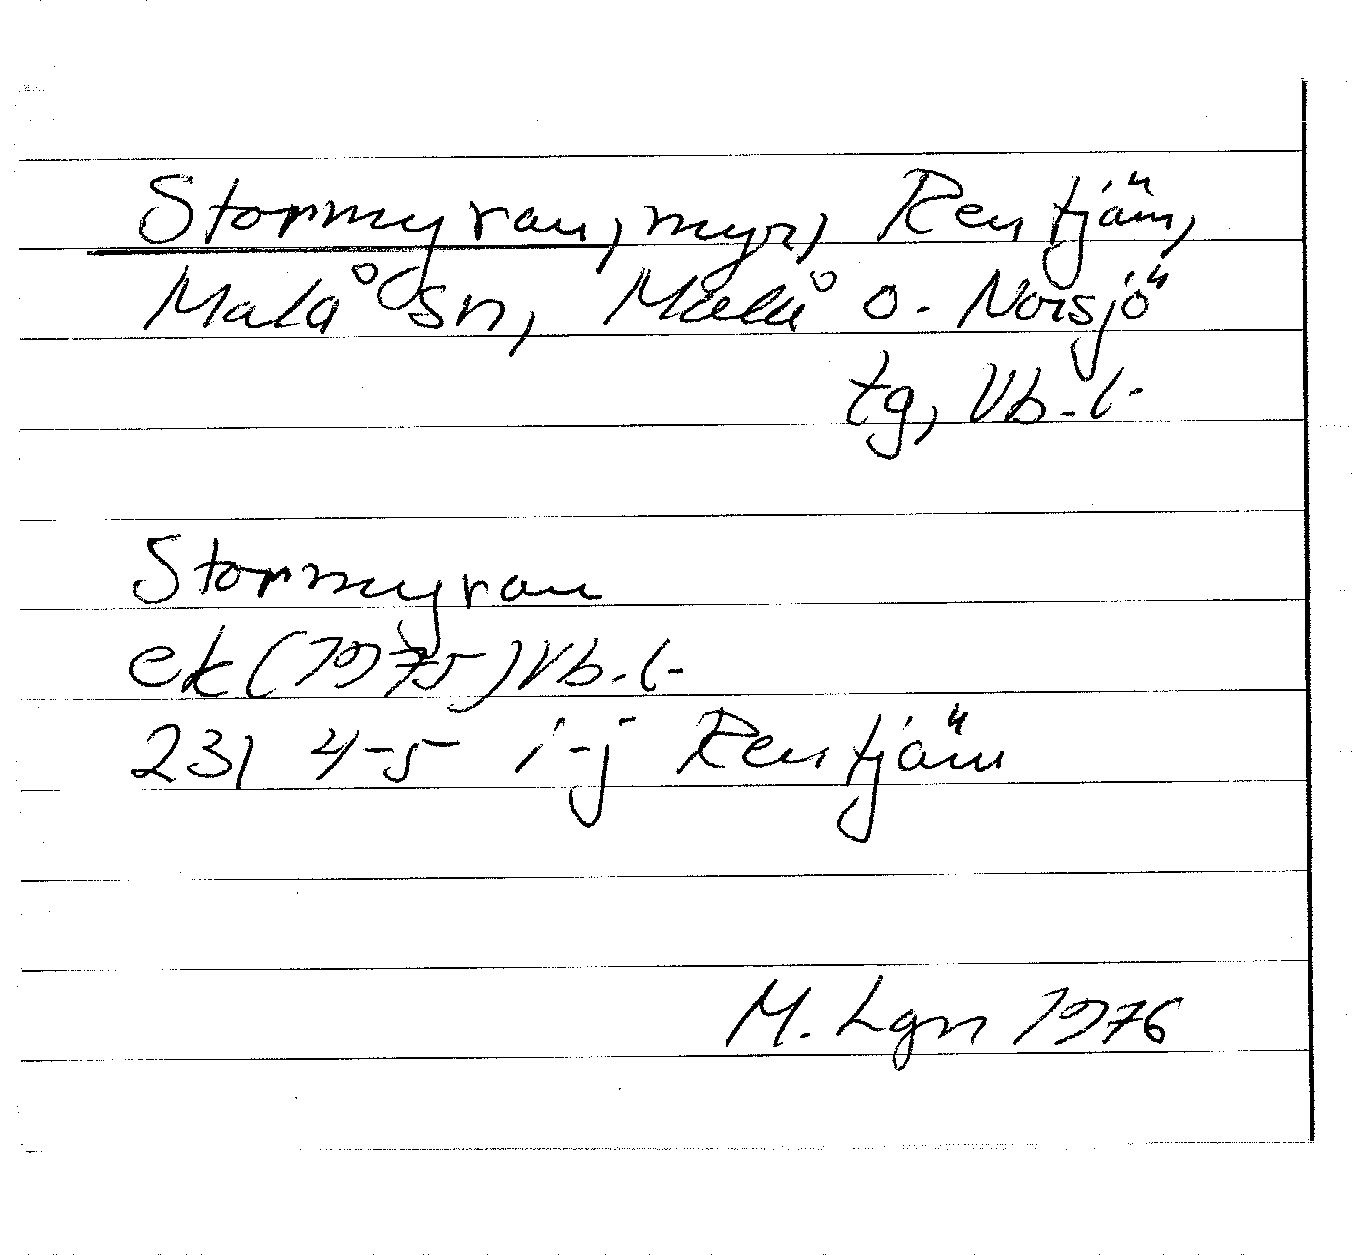 Stormyran, myr, Rentjäm,
Malå sn, Malå o. Norsjö
tg, Vb. l.
Stormyran
ek (1975) Vb. l.
231 4-5 i-j Rentjäm
M. Lgn 1976